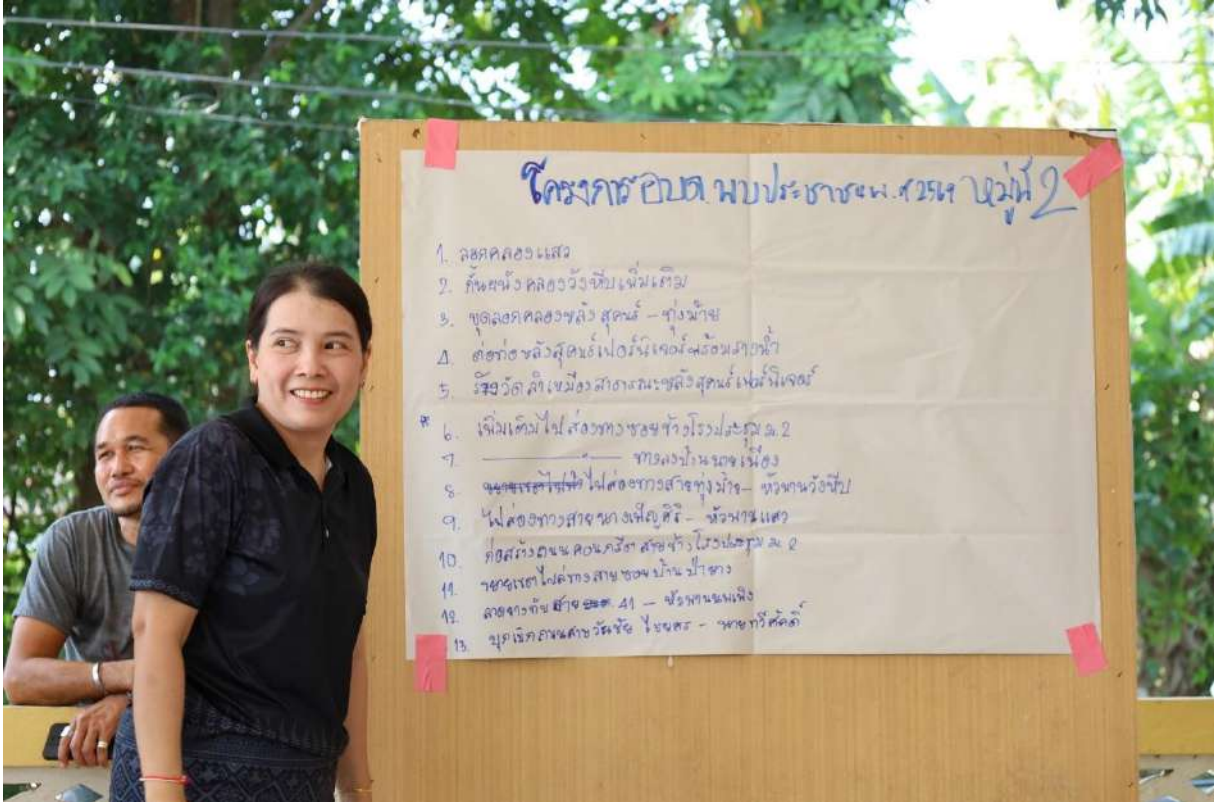 โครงการ อบต. พบประชาชน พ.ศ 2569 หมู่ที่ 2
1. ลอกคลองแสว
2. กั้นผนังคลองวังหีบเพิ่มเติม
3. ขุดลอกคลองหลังสุคนธ์ - ทุ่งม้าย
4. ต่อท่อหลังสุคนธ์เฟอร์นิเจอร์พร้อมรางน้ำ
5. รังวัดลำเหมืองสาธารณะหลังสุคนธ์เฟอร์นิเจอร์
* 6. เพิ่มเติมไฟส่องทางซอยข้างโรงประชุม ม.2
7. ———"——— ทางลงบ้านนายเนื่อง
8. ขยายเขตไฟฟ้า ไฟส่องทางสายทุ่งม้าย - หัวพานวังหีบ
9. ไฟส่องทางสายนางเพ็ญศิริ - หัวพานแสว
10. ก่อสร้างถนนคอนกรีตสายข้างโรงประชุม ม.2
11. ขยายเขตไฟส่องทางสายซอยบ้านป่ายาง
12. ลาดยางทับสาย 41 - หัวพาน
13. บุกเบิกถนนสายวันชัย ไชยศร - นายทวีศักดิ์